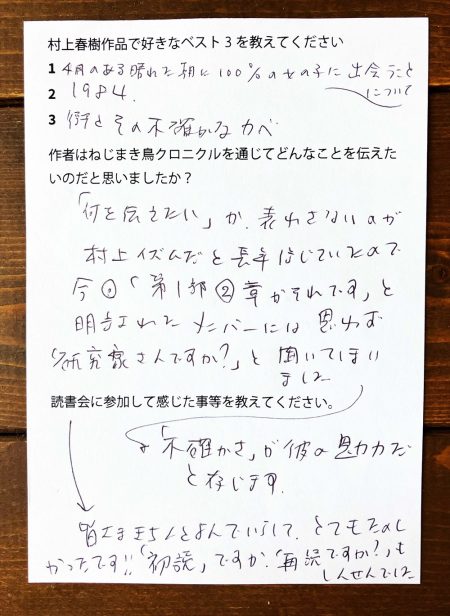 村上春樹作品で好きなベスト3を教えてください
1 4月のある晴れた朝に100%の女の子に出会うこと
について
2 1984.
3 街とその不確かなカベ
作者はねじまき鳥クロニクルを通じてどんなことを伝えた
いのだと思いましたか？
「何を伝えたい」か、表わさないのが
村上イズムだと長年信じていたので
今回「第1部②章がそれです」と
明言されたメンバーには思わず
「研究家さんですか?」と聞いてしまい
ました
読書会に参加して感じた事等を教えてください。
「不確かさ」が彼の魅力だ
と存じます.
皆さまきちんとよんでいらして、とてもたのし
かったです!!「初読」ですか、「再読ですか?」も
しんせんでした